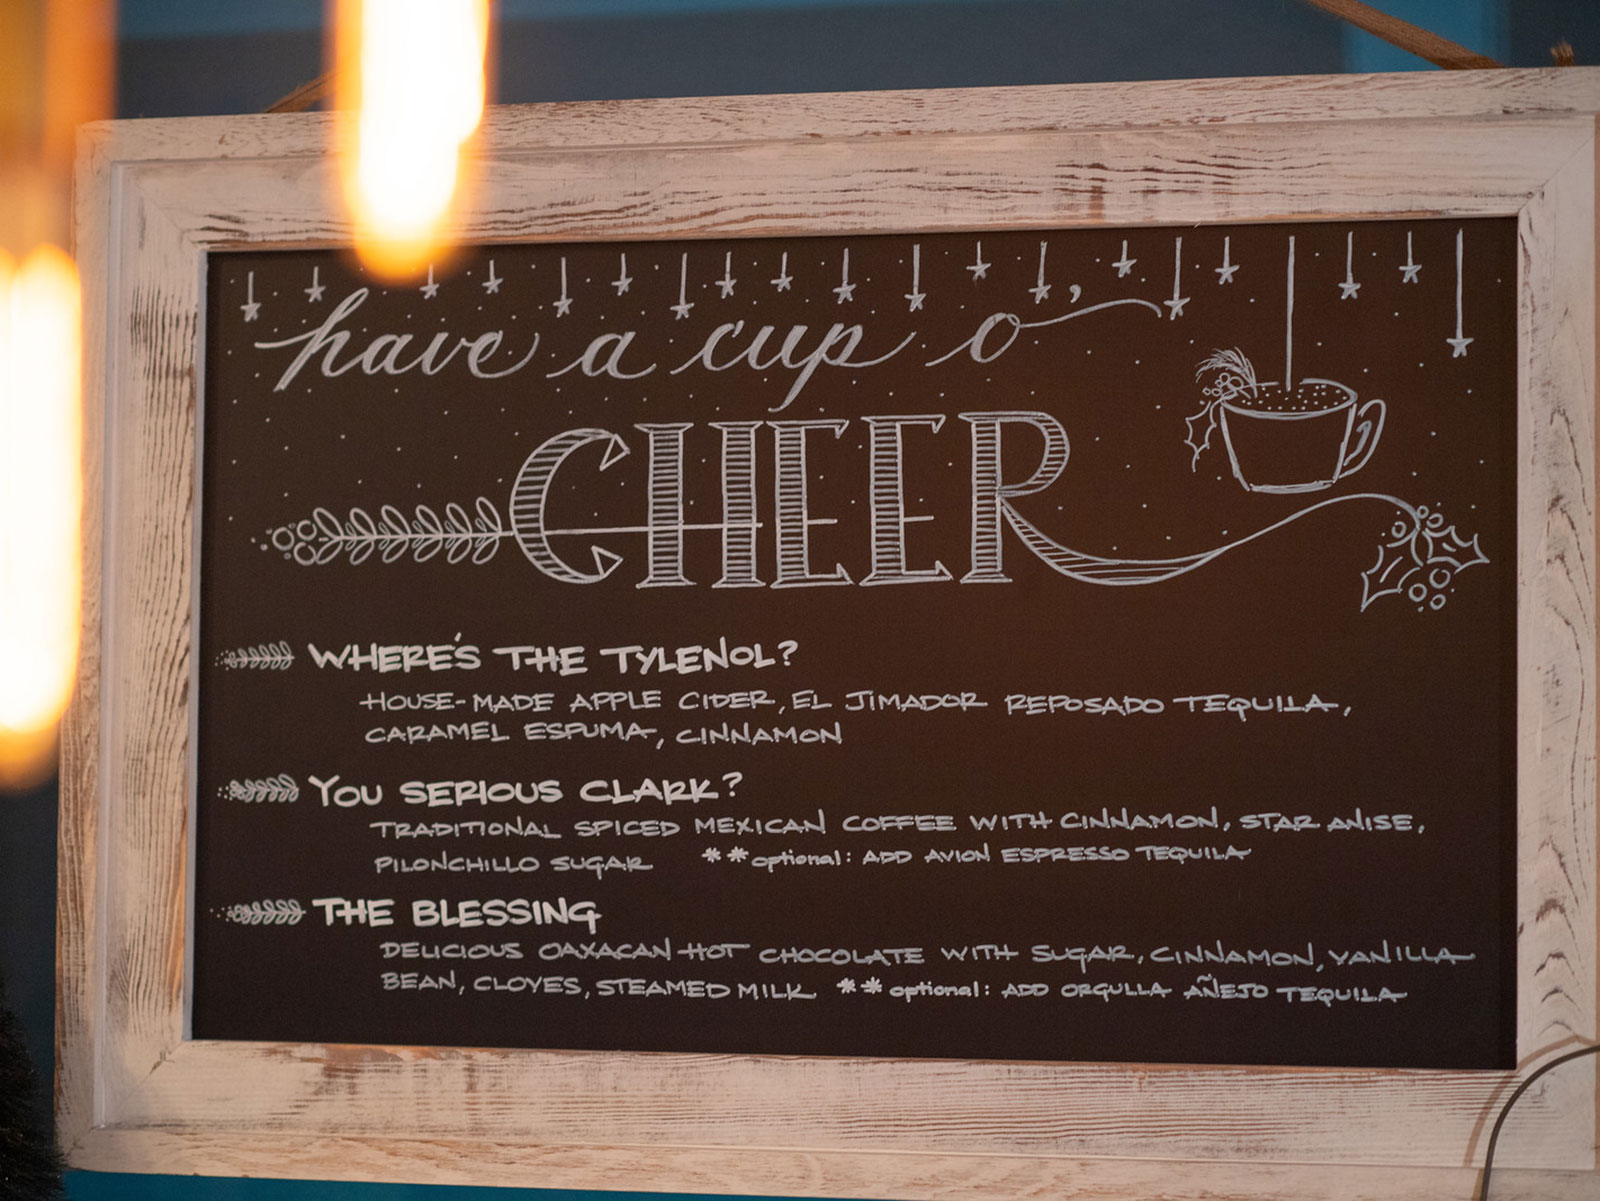 have a cup o'
CHEER
WHERE'S THE TYLENOL?
HOUSE-MADE APPLE CIDER, EL JIMADOR REPOSADO TEQUILA,
CARAMEL ESPUMA, CINNAMON
YOU SERIOUS CLARK?
TRADITIONAL SPICED MEXICAN COFFEE WITH CINNAMON, STAR ANISE,
PILONCHILLO SUGAR **optional: ADD AVION ESPRESSO TEQUILA
THE BLESSING
DELICIOUS OAXACAN HOT CHOCOLATE WITH SUGAR, CINNAMON, VANILLA
BEAN, CLOVES, STEAMED MILK **optional: ADD ORGULLA AÑEJO TEQUILA